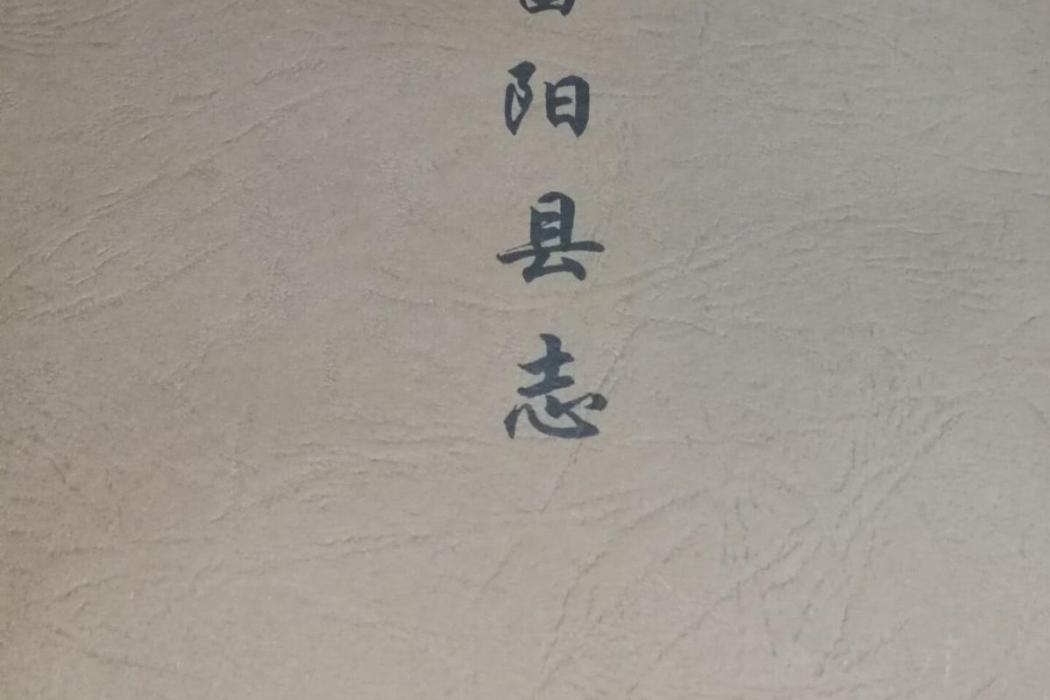 阳县志